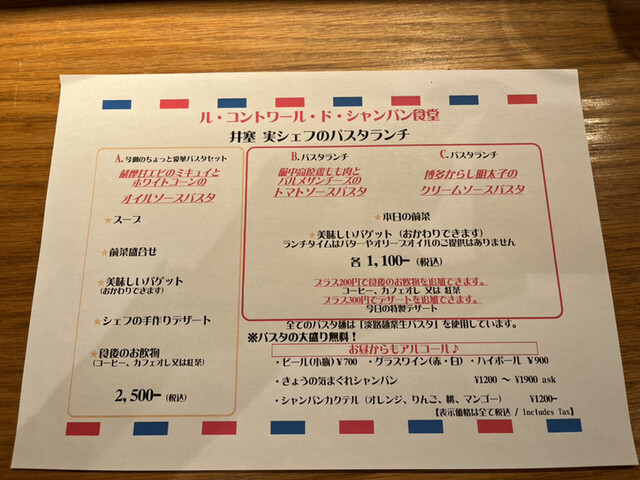 ル・コントワール・ド・シャンパン食堂
井塞 実シェフのパスタランチ
A. 今週のちょっと豪華パスタセット
薩摩甘エビのミキュイと
ホワイトコーンの
オイルソースパスタ
★スープ
★前菜盛合せ
★美味しいバゲット
(おかわりできます)
★シェフの手作りデザート
★食後のお飲物
(コーヒー、カフェオレ又は紅茶)
2,500- (税込)
B. パスタランチ
備中高原鶏もも肉と
パルメザンチーズの
トマトソースパスタ
C. パスタランチ
博多からし明太子の
クリームソースパスタ
★本日の前菜
★美味しいバゲット (おかわりできます)
ランチタイムはバターやオリーブオイルのご提供はありません
各 1,100- (税込)
プラス200円で食後のお飲物を追加できます。
コーヒー、カフェオレ 又は 紅茶
プラス300円でデザートを追加できます。
今日の特製デザート
全てのパスタ麺は「淡路麺業生パスタ」を使用しています。
※パスタの大盛り無料！
お昼からもアルコール♪
・ビール(小瓶)¥700 ・グラスワイン(赤・白) ・ハイボール ¥900
・きょうの気まぐれシャンパン ¥1200 ～ ¥1900 ask
・シャンパンカクテル (オレンジ、りんご、桃、マンゴー) ¥1200-
【表示価格は全て税込 / Includes Tax】